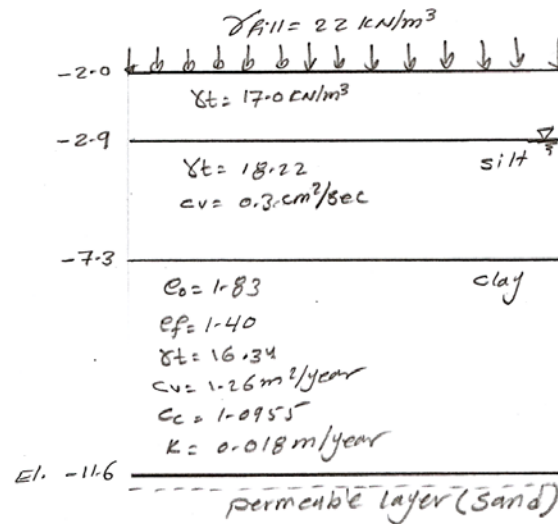 γfill = 22 KN/m³
-2.0
γt = 17.0 KN/m³
-2.9
γt = 18.22
silt
cv = 0.3 cm²/sec
-7.3
clay
e₀ = 1.83
ef = 1.40
γt = 16.34
cv = 1.26 m²/year
cc = 1.0955
K = 0.018 m/year
El. -11.6
permeable layer (sand)